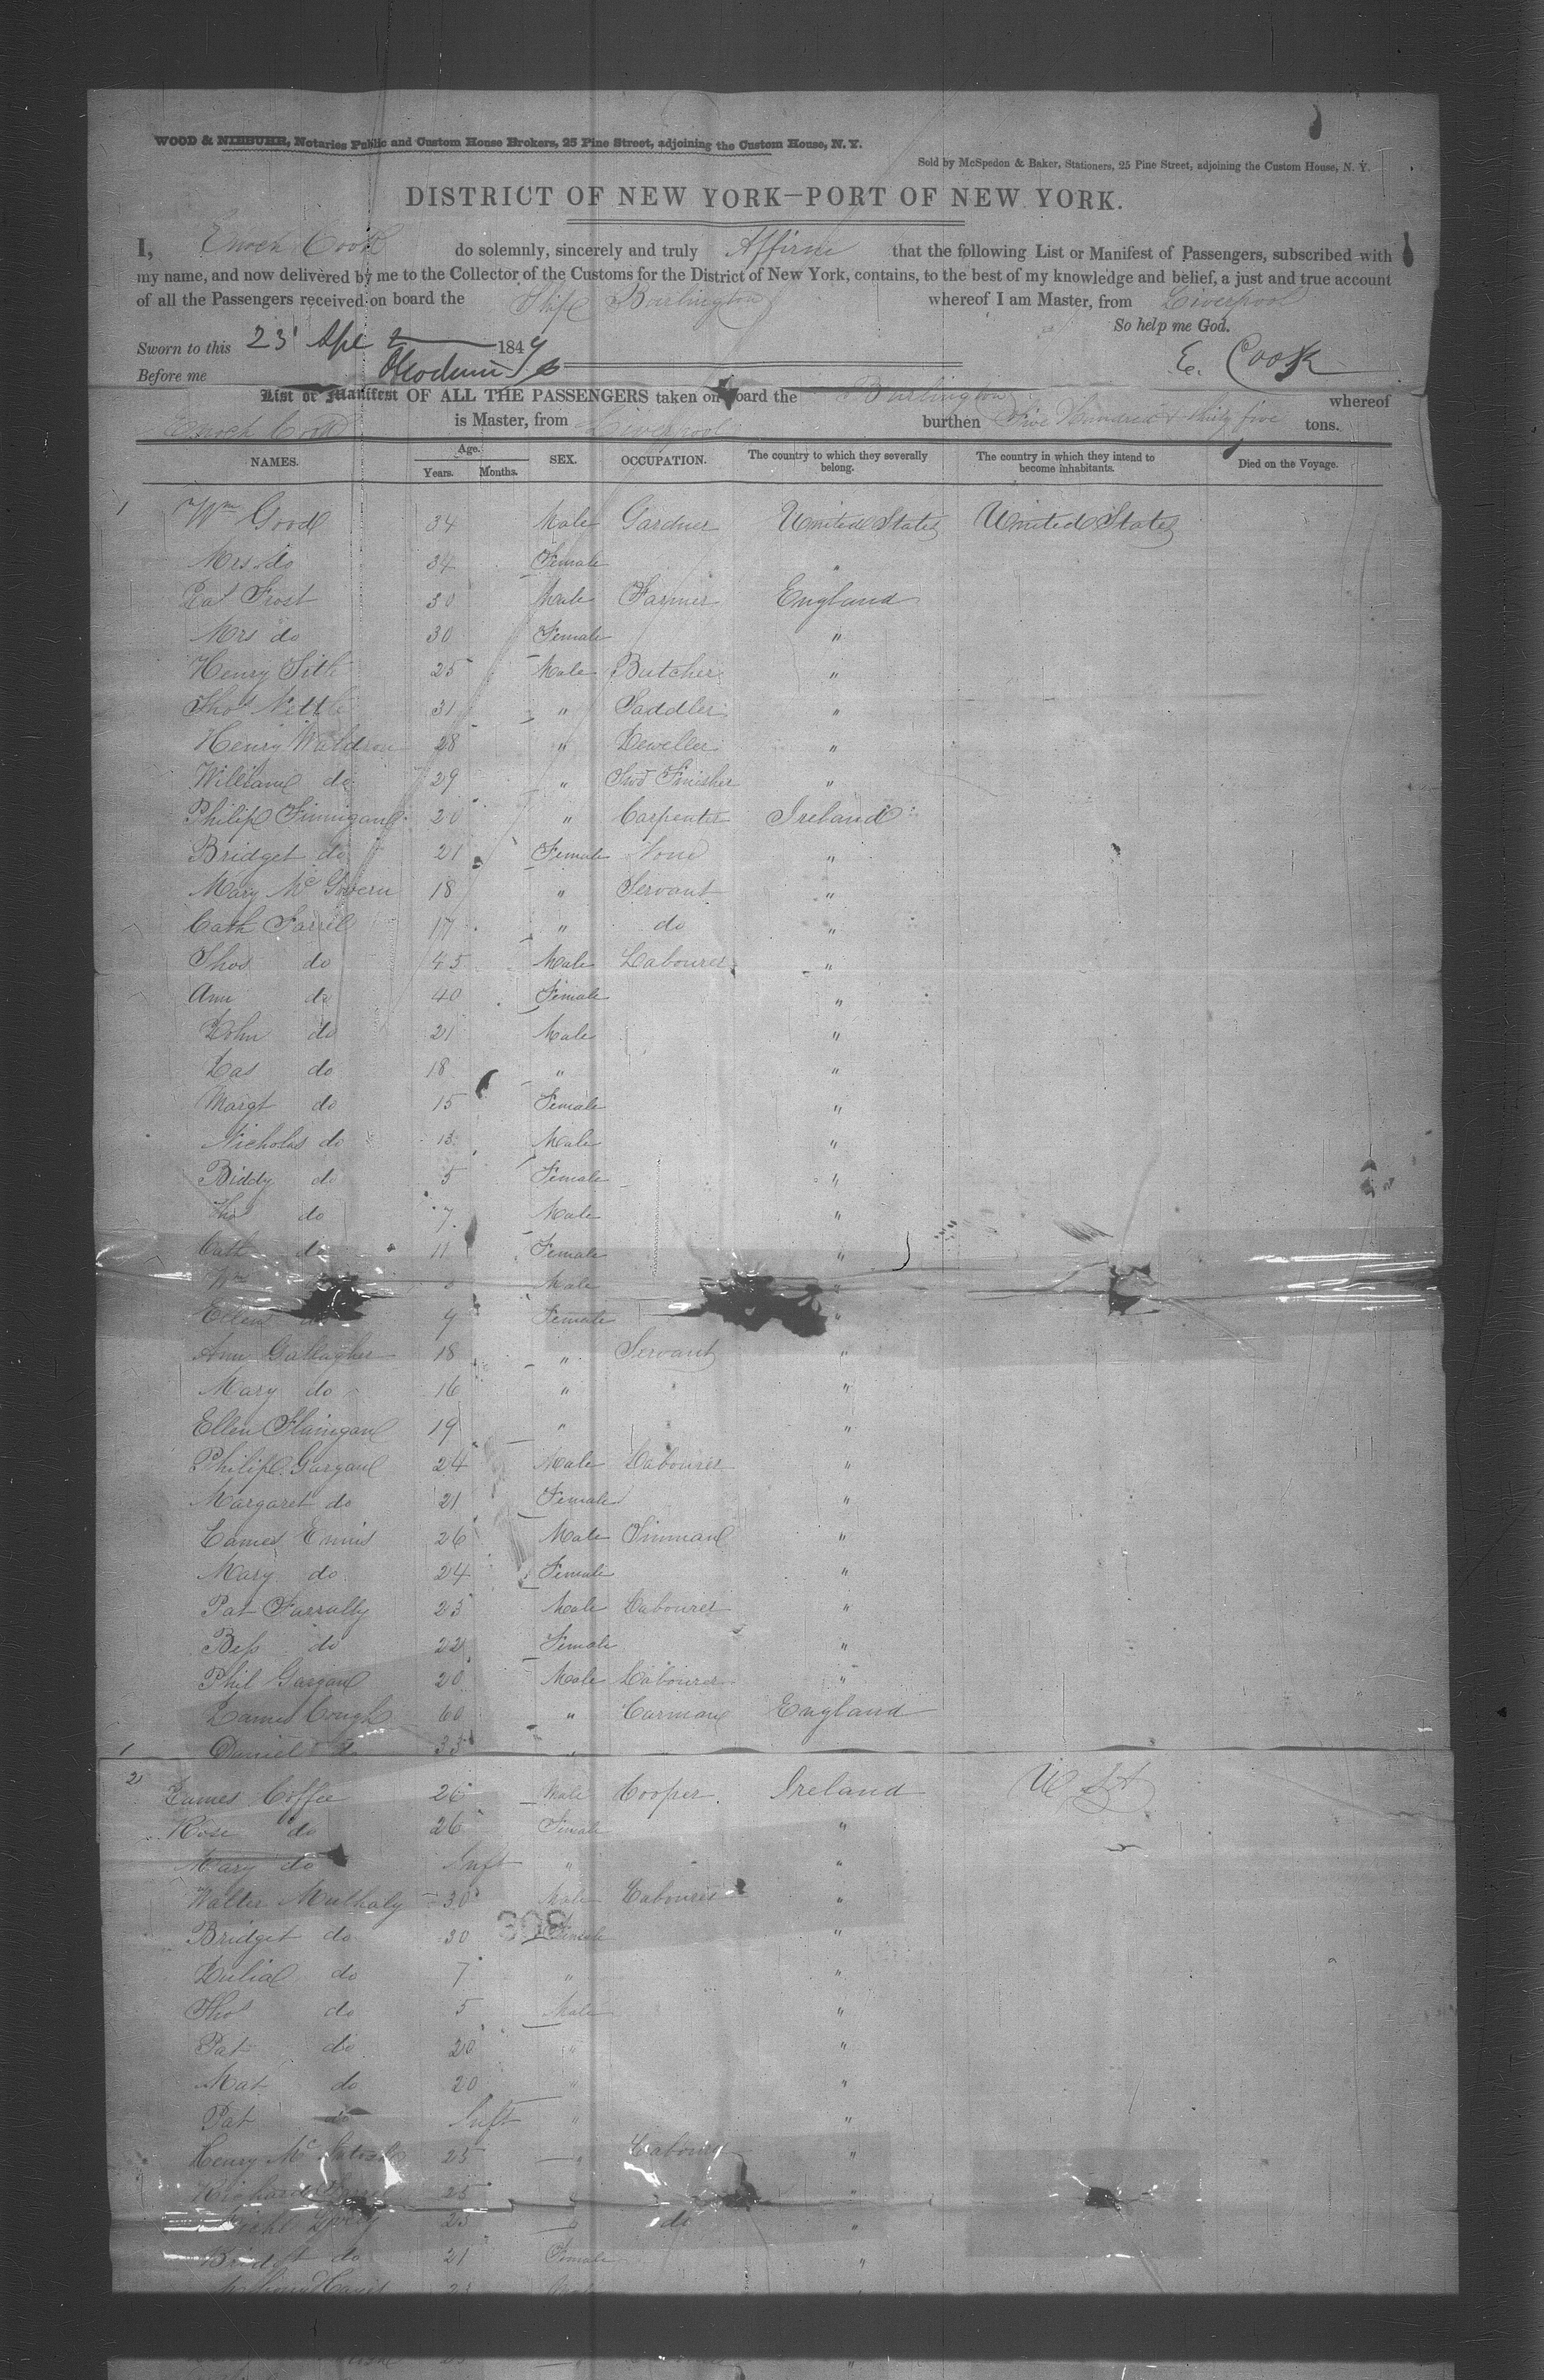 WOOD & NIEBUHR, Notaries Public and Custom House Brokers, 25 Pine Street, adjoining the Custom House, N. Y.
Sold by McSpedon & Baker, Stationers, 25 Pine Street, adjoining the Custom House, N. Y.
DISTRICT OF NEW YORK—PORT OF NEW YORK.
I, Enoch Cook do solemnly, sincerely and truly Affirm that the following List or Manifest of Passengers, subscribed with
my name, and now delivered by me to the Collector of the Customs for the District of New York, contains, to the best of my knowledge and belief, a just and true account
of all the Passengers received on board the Ship Burlington whereof I am Master, from Liverpool
So help me God.
Sworn to this 23 Apl 1849
Before me E. Cook
List or Manifest OF ALL THE PASSENGERS taken on board the Burlington whereof
Enoch Cook is Master, from Liverpool burthen Five Hundred & thirty five tons.
NAMES. Age. Years. Months. SEX. OCCUPATION. The country to which they severally belong. The country in which they intend to become inhabitants. Died on the Voyage.
1 Wm Good 34 Male Gardner United States United States
Mrs do 34 Female "
Pat Frost 30 Male Farmer England
Mrs do 30 Female "
Henry 25 Male Butcher "
Thos 31 " Saddler "
Henry Waldron 28 " Jeweller "
William do 29 " Finisher "
Philip Finnigan 20 " Carpenter Ireland
Bridget do 21 Female None "
Mary McGovern 18 " Servant "
Cath Farrel 17 " do "
Thos do 45 Male Labourer "
Ann do 40 Female "
John do 21 Male "
Jas do 18 " "
Margt do 15 Female "
Nicholas do 13 Male "
Biddy do 5 Female "
Thos do 7 Male "
Cath do 11 Female "
Wm Male "
Ellen do 9 Female "
Ann Gallagher 18 " Servant "
Mary do 16 " "
Ellen Flanigan 19 " "
Philip Gargan 24 Male Labourer "
Margaret do 21 Female "
James Ennis 26 Male Tinman "
Mary do 24 Female "
Pat Farrally 23 Male Labourer "
Bess do 22 Female "
Phil Gargan 20 Male Labourer "
James Cough 60 " Carman England
1 Daniel do 33 "
2 James Coffee 26 Male Cooper Ireland U St
Rose do 26 Female "
Mary do Inft " "
Walter Mulhaly 30 Male Labourer "
308
Bridget do 30 Female "
Julia do 7 " "
Thos do 5 Male "
Pat do 20 " "
Mat do 20 " "
Pat do Inft " "
Henry Mc 25 " Labourer "
Richard 25 " "
Michl 25 " do "
Bridgt do 21 Female "